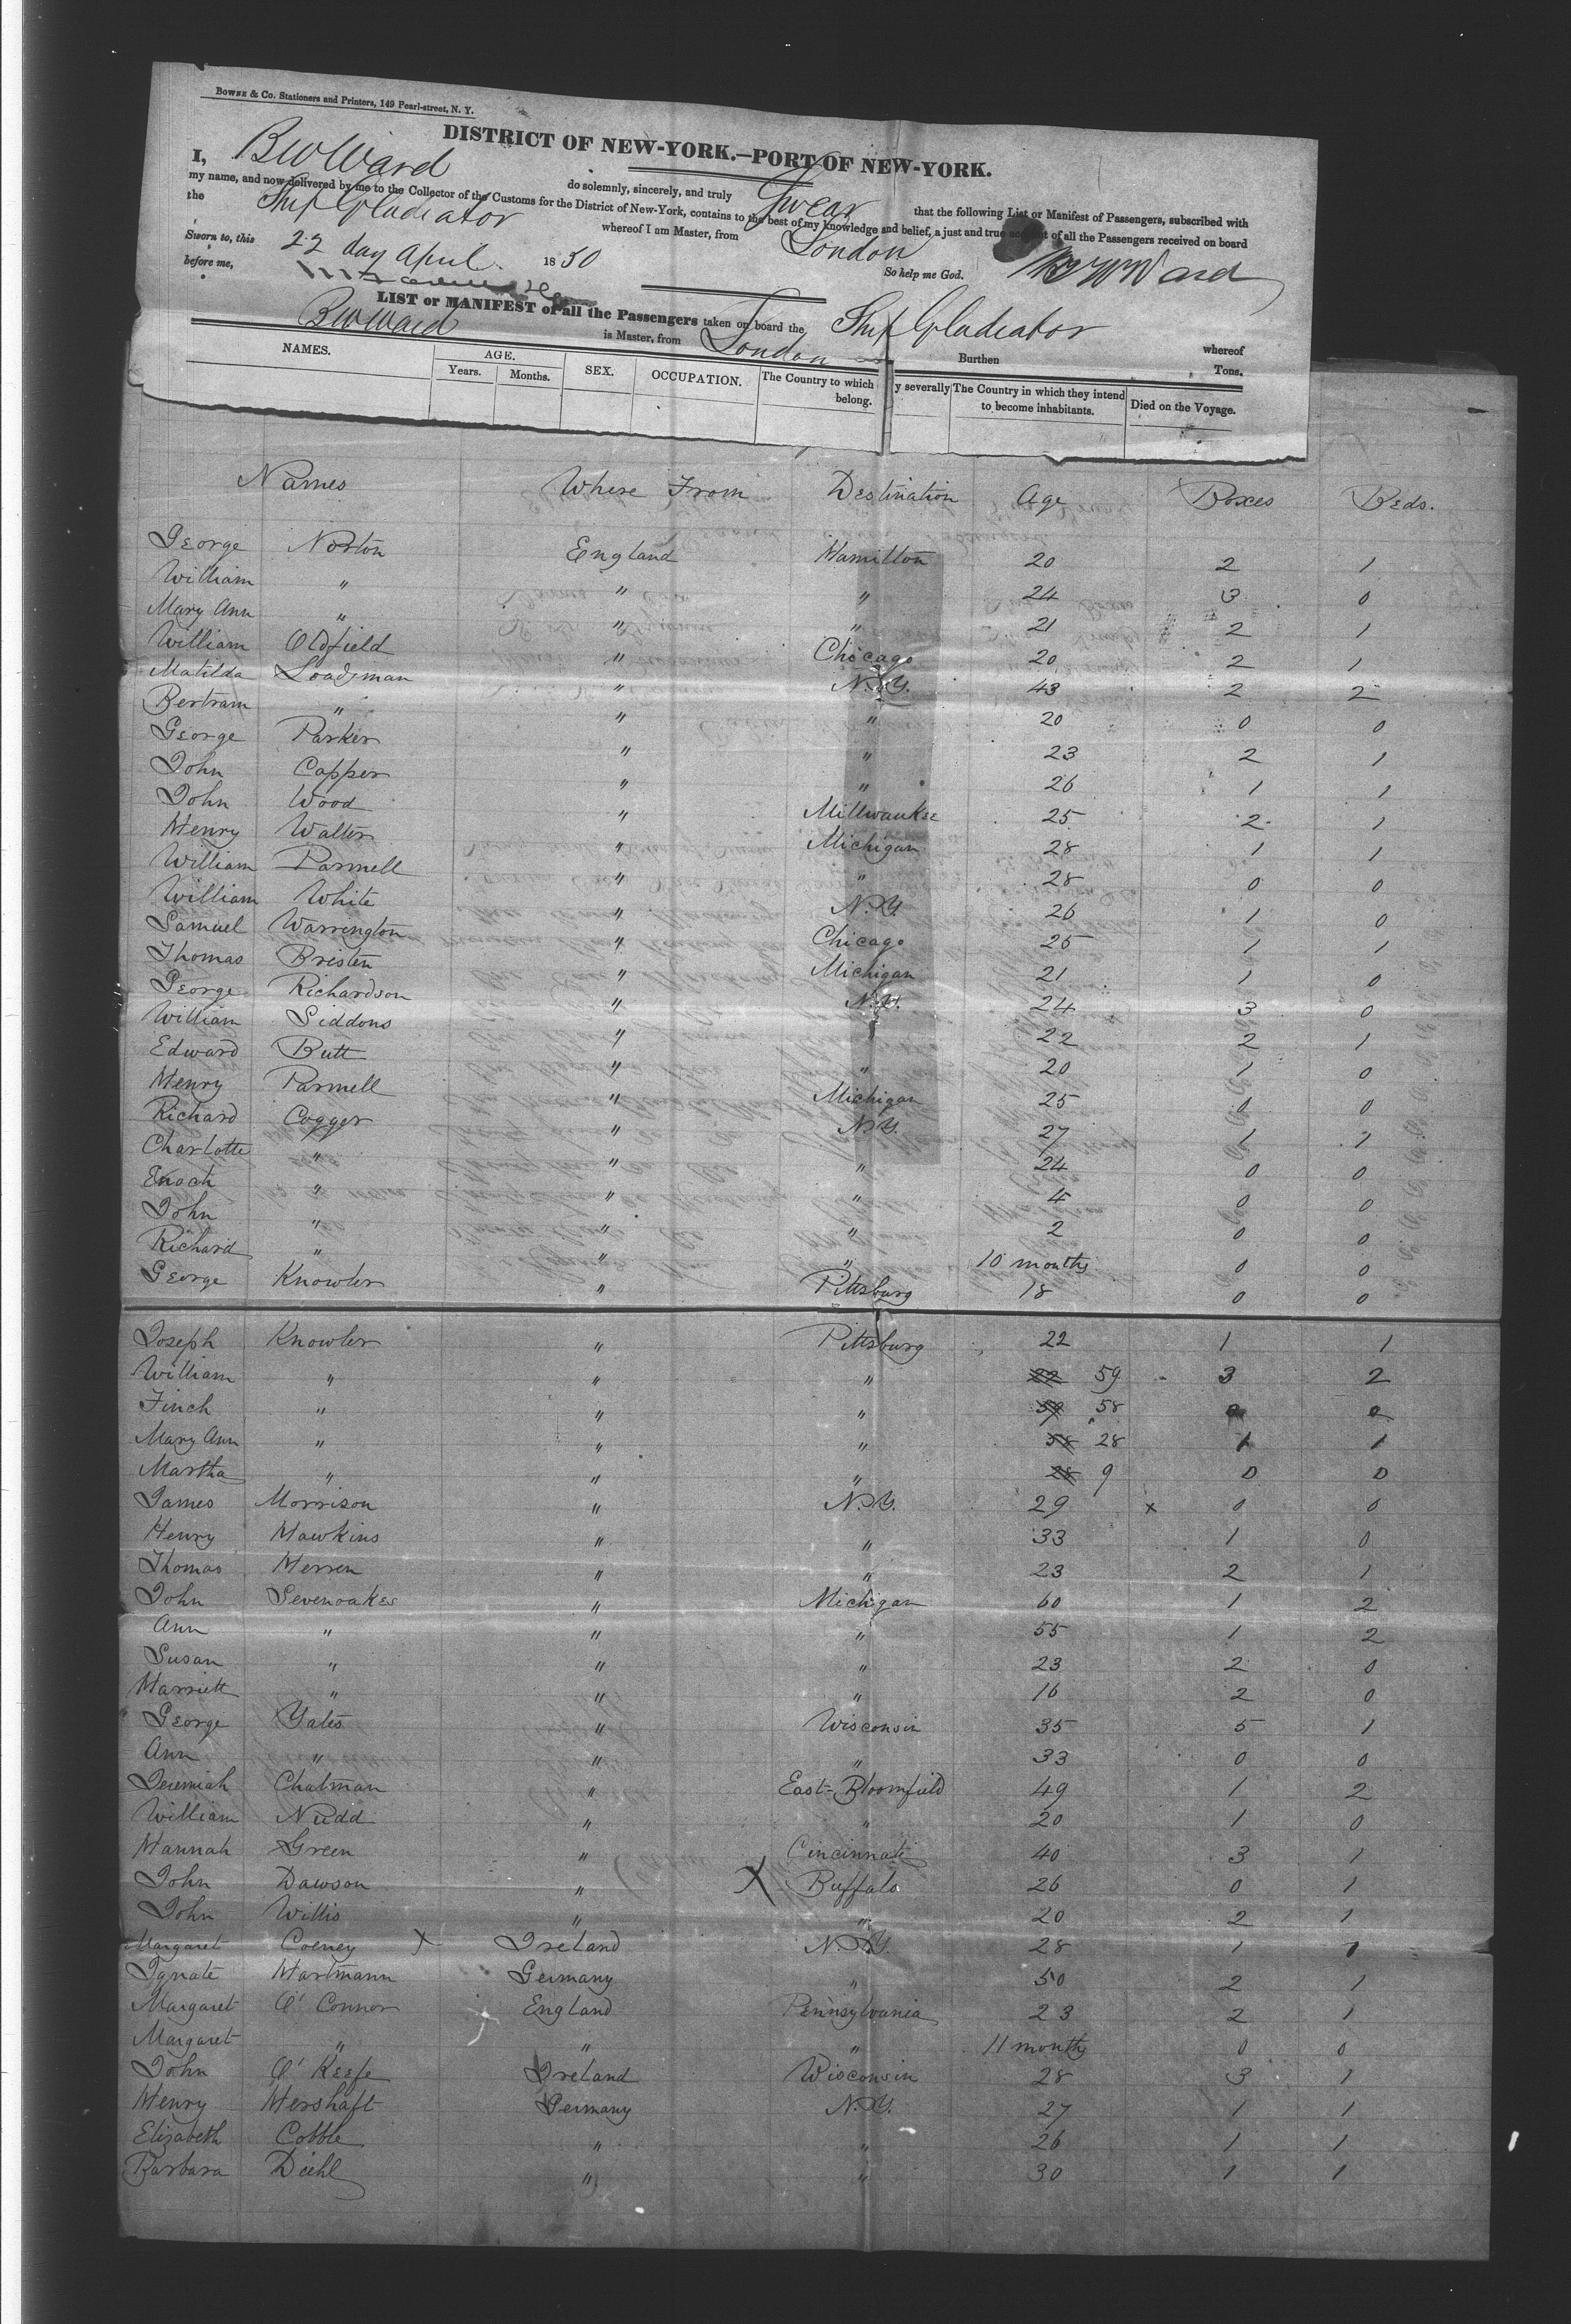 BOWNE & Co. Stationers and Printers, 149 Pearl-street, N. Y.
DISTRICT OF NEW-YORK.—PORT OF NEW-YORK.
I, BW Ward do solemnly, sincerely, and truly Swear that the following List or Manifest of Passengers, subscribed with
my name, and now delivered by me to the Collector of the Customs for the District of New-York, contains to the best of my knowledge and belief, a just and true account of all the Passengers received on board
the Ship Gladiator whereof I am Master, from London
Sworn to, this 22 day April 1850 So help me God. BW Ward
before me,
LIST or MANIFEST of all the Passengers taken on board the Ship Gladiator whereof
BW Ward is Master, from London Burthen Tons.
NAMES. AGE. SEX. OCCUPATION. The Country to which y severally belong. The Country in which they intend to become inhabitants. Died on the Voyage.
Years. Months.
Names Where From Destination Age Boxes Beds.
George Norton England Hamilton 20 2 1
William " " " 24 3 0
Mary Ann " " " 21 2 1
William Oldfield " Chicago 20 2 1
Matilda Loadsman " N.Y. 43 2 2
Bertram " " " 20 0 0
George Parker " " 23 2 1
John Capper " " 26 1 1
John Wood " Millwaukee 25 2 1
Henry Walter " Michigan 28 1 1
William Parnell " " 28 0 0
William White " N.Y. 26 1 0
Samuel Warrington " Chicago 25 1 1
Thomas Bristen " Michigan 21 1 0
George Richardson " N.Y. 24 3 0
William Siddons " " 22 2 1
Edward Butt " " 20 1 0
Henry Parnell " Michigan 25 0 0
Richard Cogger " N.Y. 27 1 2
Charlotte " " " 24 0 0
Enoch " " " 4 0 0
John " " " 2 0 0
Richard " " " 10 months 0 0
George Knowler " Pittsburg 18 0 0
Joseph Knowler " Pittsburg 22 1 1
William " " " 22 59 3 2
Finch " " " 59 58 0 0
Mary Ann " " " 58 28 1 1
Martha " " " 28 9 0 0
James Morrison " N.Y. 29 x 0 0
Henry Hawkins " " 33 1 0
Thomas Herren " " 23 2 1
John Sevenoakes " Michigan 60 1 2
Ann " " " 55 1 2
Susan " " " 23 2 0
Harriett " " " 16 2 0
George Yates " Wisconsin 35 5 1
Ann " " " 33 0 0
Jeremiah Chatman " East-Bloomfield 49 1 2
William Nudd " " 20 1 0
Hannah Green " Cincinnati 40 3 1
John Dawson " X Buffalo 26 0 1
John Willis " " 20 2 1
Margaret Coeney X Ireland N.Y. 28 1 1
Ignate Hartmann Germany " 50 2 1
Margaret O'Connor England Pennsylvania 23 2 1
Margaret " " " 11 months 0 0
John O'Keefe Ireland Wisconsin 28 3 1
Henry Hershaft Germany N.Y. 27 1 1
Elizabeth Cobble " " 26 1 1
Barbara Diehl " " 30 1 1